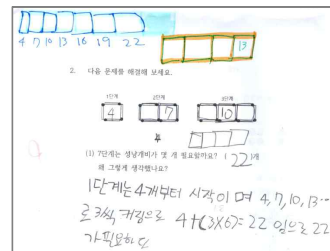 4 7 10 13 16 19 22
13
2. 다음 문제를 해결해 보세요.
1단계 2단계 3단계
4 7 10
(1) 7단계는 성냥개비가 몇 개 필요할까요? ( 22 )개
왜 그렇게 생각했나요?
1단계는 4개부터 시작이며 4, 7, 10, 13…
로 3씩 커짐으로 4+(3×6)=22 임으로 22
가 필요하다